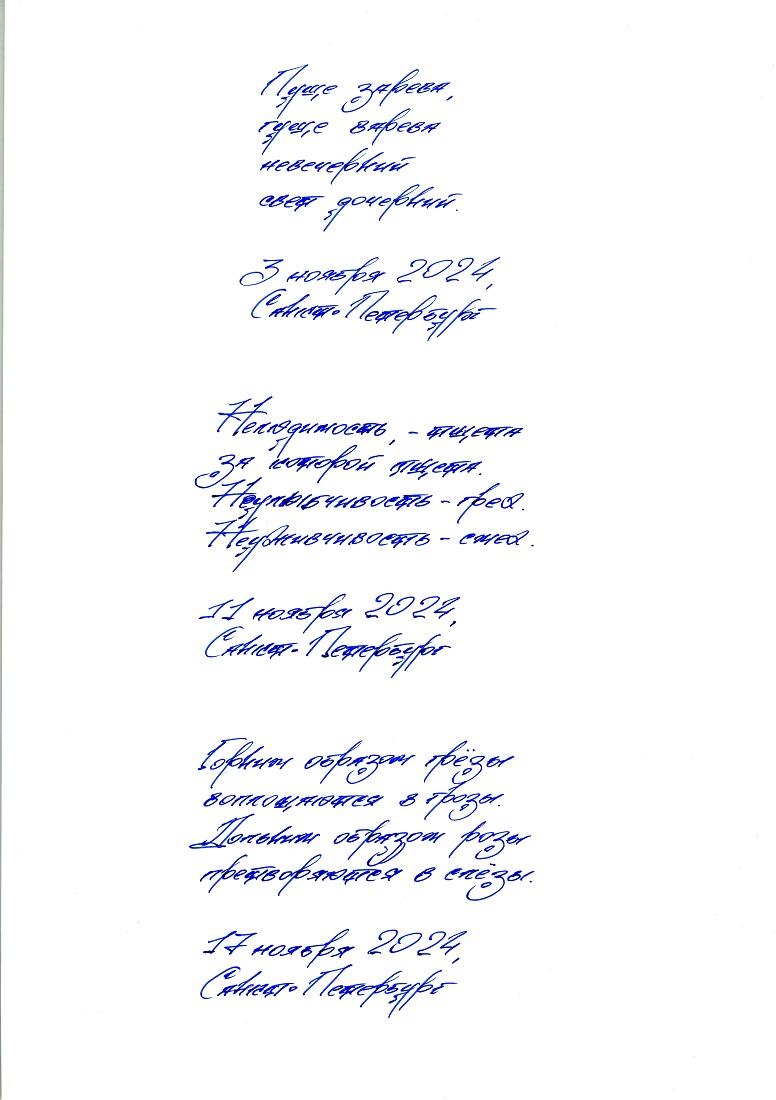 Пуще зарева,
гуще варева
невечерний
свет дочерний.
3 ноября 2024,
Санкт-Петербург
Неплодимость, - тщета
за которой тщета.
Неулыбчивость - грех.
Неуживчивость - смех.
11 ноября 2024,
Санкт-Петербург
Горним образом грёзы
воплощаются в грозы.
Дольним образом розы
претворяются в слёзы.
17 ноября 2024,
Санкт-Петербург